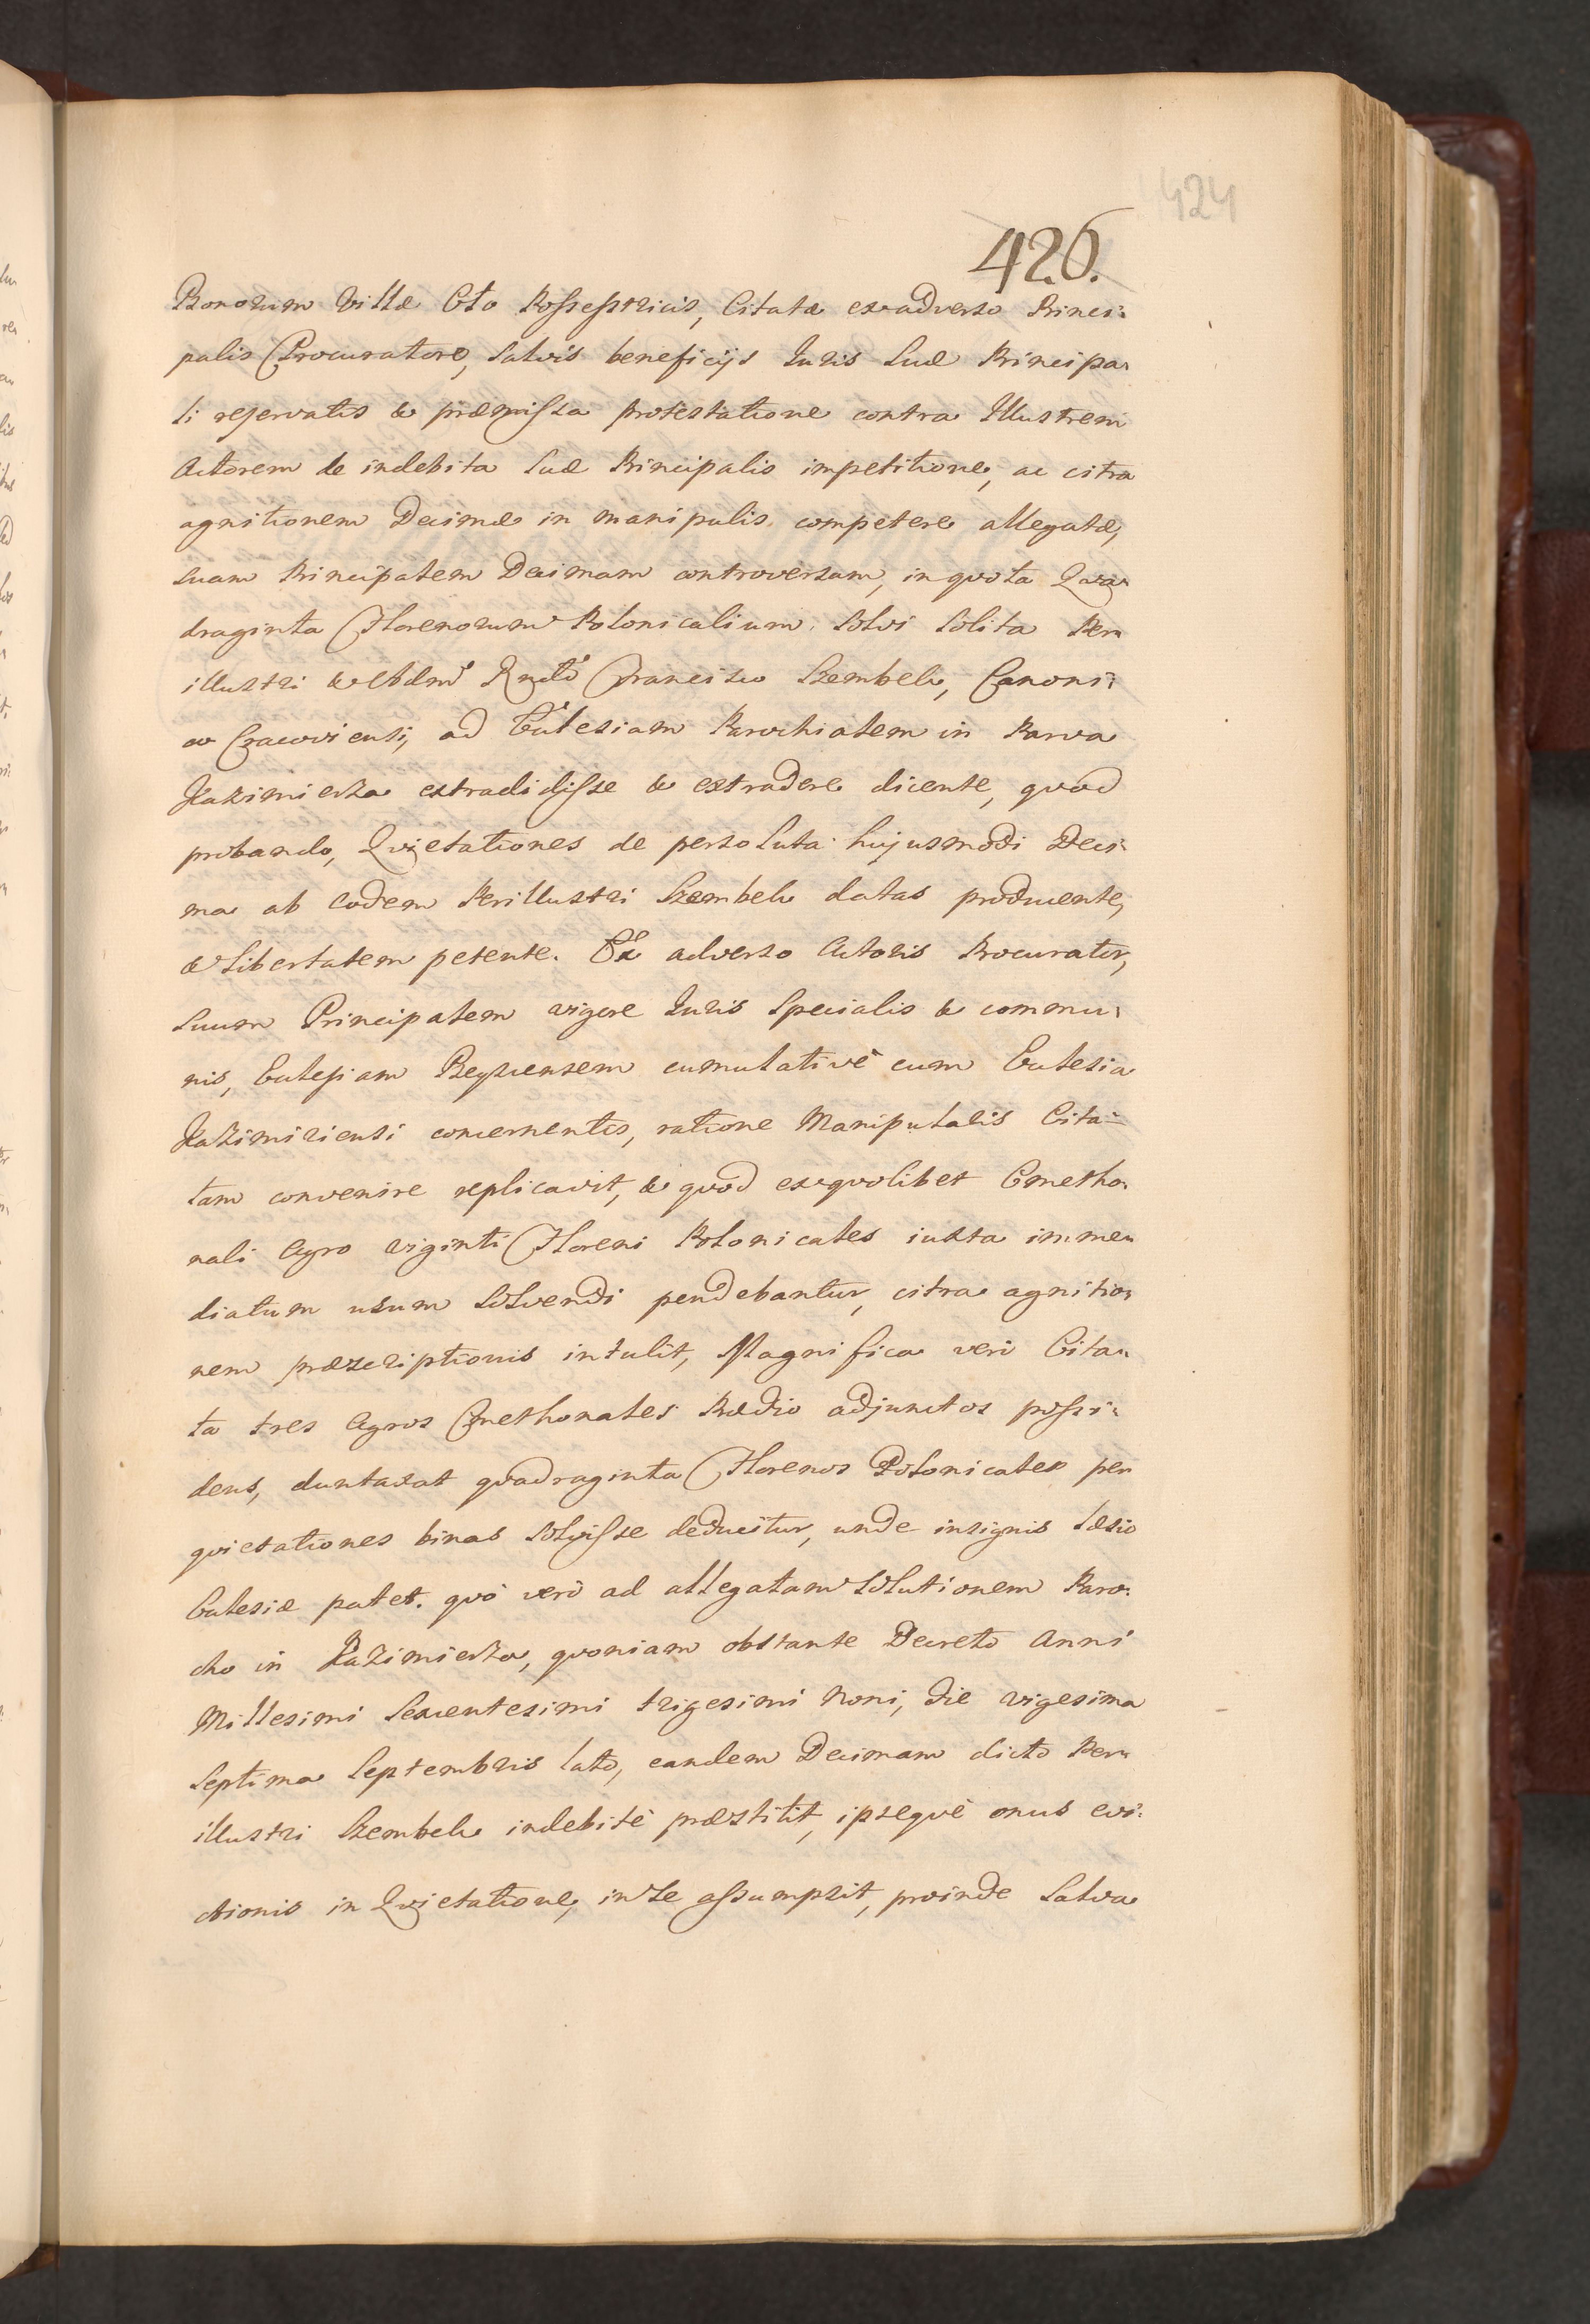 424
426.
Bonorum Villæ Cło Possessricis, Citatæ ex adverso Princi:
palis Procuratore, salvis beneficijs Juris Suæ Principa:
li reservatis & præmissa protestatione contra Illustrem
Actorem de indebita Suæ Principalis impetitione, ac citra
agnitionem Decimæ in manipulis competere allegatæ,
Suam Principalem Decimam controversam, in quota Qua:
draginta Florenorum Polonicalium Solvi Solita Per:
illustri & Adm̃ Rndõ Francisco Szembek, Canoni:
co Cracoviensi, ad Ecclesiam Parochialem in Parva
Kazimierza extradidisse & extradere dicente, quod
probando, Quietationes de persoluta hujusmodi Deci:
ma ab Eodem Perillustri Szembek datas producente,
& Libertatem petente. Ex adverso Actoris Procurator,
Suum Principalem vigore Juris Specialis & commu:
nis, Ecclesiam Beyscensem cumulative cum Ecclesia
Kazimiriensi concernentis, ratione Manipulalis Cita:
tam convenire replicavit, & quod ex quolibet Cmetho:
nali Agro viginti Floreni Polonicales iuxta imme:
diatum usum Solvendi pendebantur, citra agnitio:
nem præscriptionis intulit, Magnifica verò Cita:
ta tres Agros Cmethonales Prædio adjunctos possi:
dens, duntaxat quadraginta Florenos Polonicales per
quietationes binas Solvisse deducitur, unde insignis læsio
Ecclesiæ patet. quò verò ad allegatam Solutionem Paro:
cho in Kazimierza, quoniam obstante Decreto Anni
Millesimi Sexcentesimi trigesimi Noni, die vigesima
Septima Septembris lato, eandem Decimam dicto Per:
illustri Szembek indebitè præstitit, ipseque onus evi:
ctionis in Quietatione, in Se assumpsit, proinde Salva